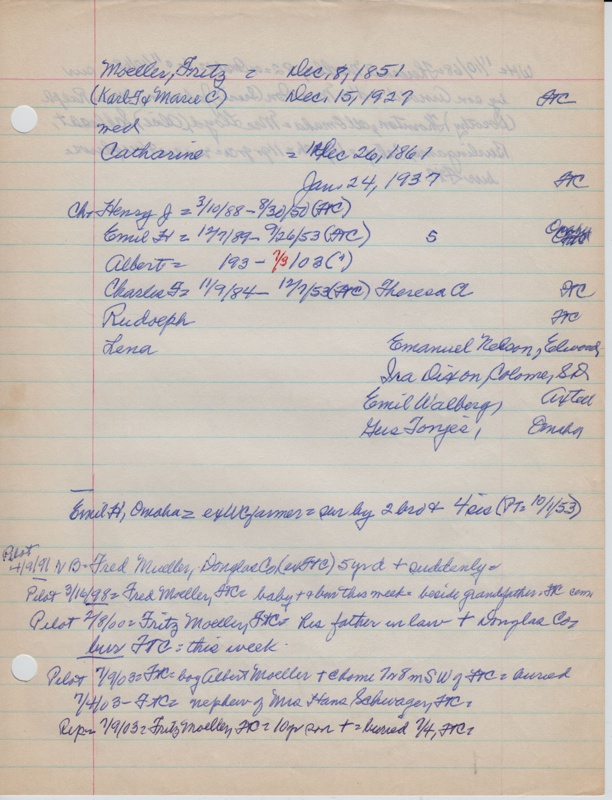 Moeller, Fritz = Dec. 8, 1851
(Karl F & Marie C) Dec. 15, 1927 FTC
med
Catharine = Dec 26, 1861
Jan. 24, 1937 FTC
Ch. Henry J = 3/10/88 - 8/30/50 (FTC)
Emil H = 12/7/89 - 9/26/53 (FTC) S
Albert = 193 - 7/3/03 (9)
Charles F = 11/9/84 - 12/7/53 (FTC) Theresa A FTC
Rudolph FTC
Lena Emanuel Nelson, Edwards
Ira Dixon, Colome, SD
Emil Walberg, Axtell
Gus Tonjes, Omaha
Emil H, Omaha = ex WC farmer = sur by 2 bro & 4 sis (PT = 10/1/53)
Pilot
4/9/91 B = Fred Mueller, Douglas Co (ex FTC) 5 yr d + suddenly =
Pilot 3/16/98 = Fred Moeller, FTC = baby + & bur this week = beside grandfather = FTC cem
Pilot 2/8/00 = Fritz Moeller, FTC = his father in law + Douglas Co,
bur FTC = this week
Pilot 7/9/03 = FTC = boy Albert Moeller + @ home 7 or 8 m SW of FTC = buried
7/4/03 - FTC = nephew of Mrs Hans Schwager, FTC =
Rep = 7/9/03 = Fritz Moeller, FTC = 10 yr son + = buried 7/4, FTC =